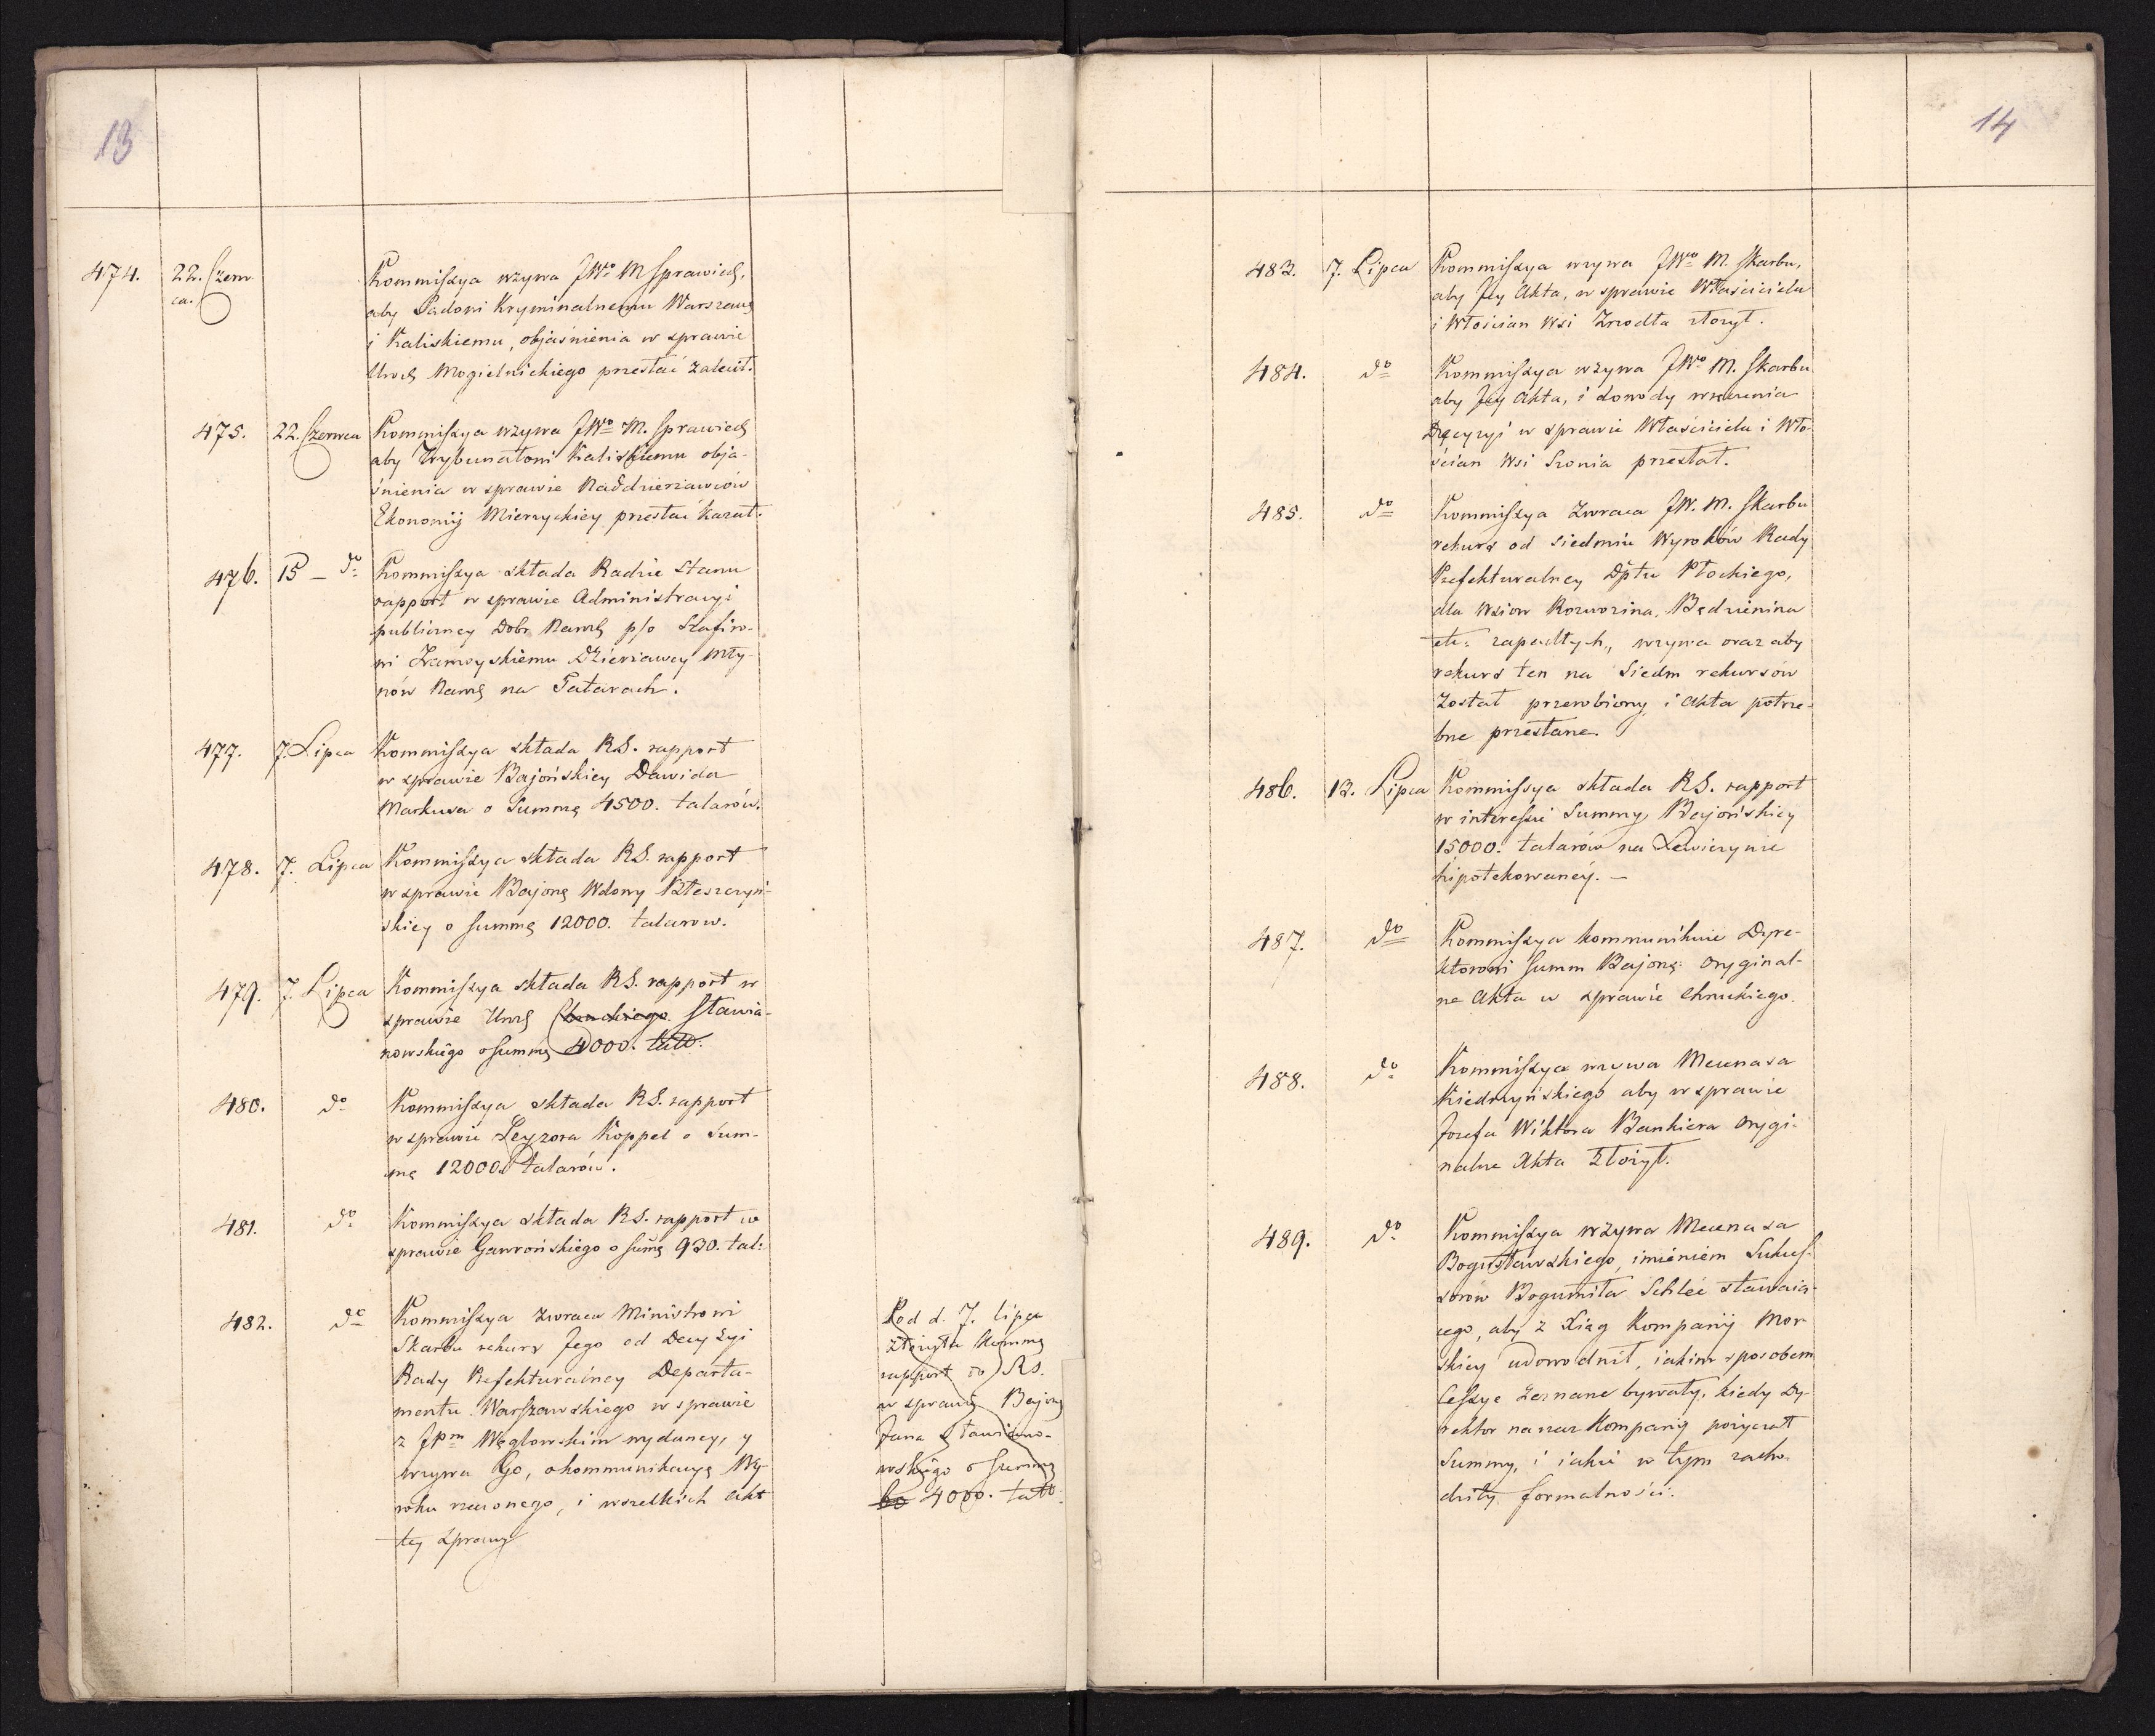 13
474. 22. Czerw
ca.
Kommissya wzywa JWo M Sprawied.
aby Sądowi Kryminalnemu Warszaws
i Kaliskiemu, objaśnienia w sprawie
Mogielnickiego przesłać zalecił.
475. 22. Czerwca Kommissya wzywa JWo M. Sprawied
aby Trybunałowi Kaliskiemu obja-
śnienia w sprawie Naddzierżawców
Ekonomij Mierzyckiey przesłać kazał.
476. 15 – do Kommissya składa Radzie Stanu
rapport w sprawie Administracyi
publiczney Dobr p/o
wi Zamoyskiemu Dzierżawcy Mły-
nów na Tatarach.
477. 7. Lipca Kommissya składa RS. rapport
w sprawie Bajońskiey Dawida
Markusa o Summę 4500. talarów.
478. 7. Lipca Kommissya składa RS. rapport
w sprawie Bajonę Wdowy Błeszczyń-
skiey o summę 12000. talarow.
479. 7. Lipca Kommissya składa RS. rapport w
sprawie Stawia-
nowskiego o summę 4000. talb.
480. do Kommissya składa RS. rapport
w sprawie Leyzora Koppel o sum-
mę 12000. talarów.
481. do Kommissya składa RS. rapport w
sprawie Gawrońskiego o sumę 930. tal:
482. do Kommissya zwraca Ministrowi
Skarbu rekurs Jego od Decyzyi
Rady Prefekturalney Departa-
mentu Warszawskiego w sprawie
z JPm Węglowskim wydaney, y
wzywa Go, o kommunikacyą Wy-
roku rzeczonego, i wszelkich Akt
tey sprawy
Pod d. 7. lipca
złożyła Kommę
rapport do RS.
w sprawie Bajonę
Jana Stawiano-
wskiego o summę
4000. talb.
14
483. 7. Lipca Kommissya wzywa JWo M. Skarbu,
aby Jey Akta, w sprawie Właściciela
i Włościan Wsi Zrzodła złożył.
484. do Kommissya wzywa JWo M. Skarbu
aby Jey Akta, i dowody wręczenia
Decyzyi w sprawie Właściciela i Wło-
ścian Wsi Sronia przesłał.
485. do Kommissya Zwraca JW. M. Skarbu
rekurs od siedmiu Wyroków Rady
Prefekturalney Dptu Płockiego,
dla Wsiow Rozwozina, Będzienina
etc. zapadłych, wzywa oraz aby
rekurs ten na Siedm rekursów
został przerobiony i Akta potrze-
bne przesłane.
486. 12. Lipca Kommissya składa RS. rapport
w interessie Summy Bajońskiey
15000. talarów na Zewierzynie
hipotekowanéy. –
487. do Kommissya kommunikuie Dyre-
ktorowi Summ Bajonę. Oryginal-
ne Akta w sprawie Chruckiego.
488. do Kommissya wzywa Mecenasa
Kiedrzyńskiego aby w sprawie
Jozefa Wiktora Bankiera orygi-
nalne Akta złożył.
489. do Kommissya wzywa Mecenasa
Bogusławskiego, imieniem Sukces-
sorów Bogumiła Schleé stawaią-
cego, aby z Xiąg Kompanij Mor
skiey udowodnił, iakim sposobem
Cessye zeznane bywały, kiedy Dy-
rektor na rzecz Kompanij pożyczał
Summy, i iakie w tym zacho-
dziły formalności.